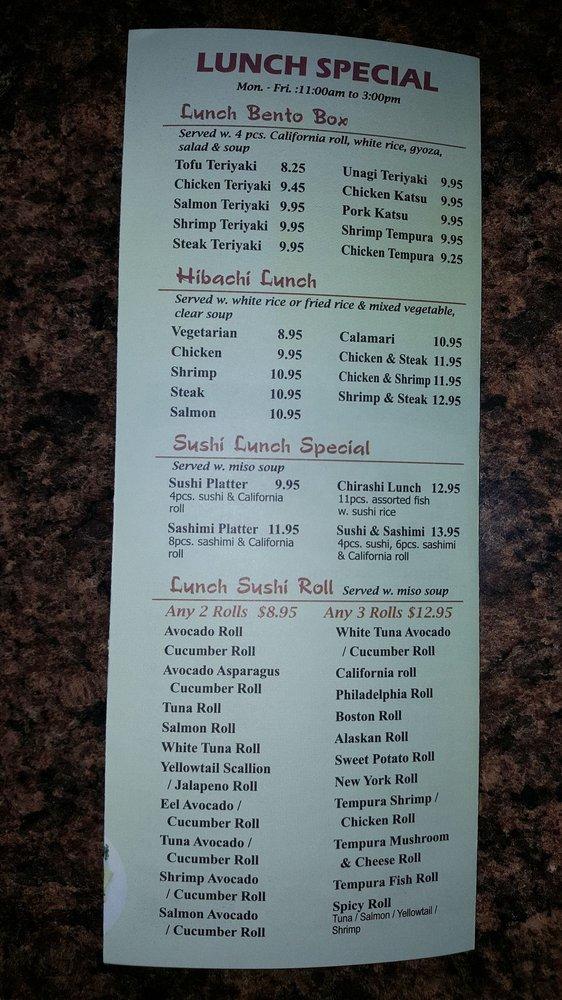 LUNCH SPECIAL
Mon. - Fri. :11:00am to 3:00pm
Lunch Bento Box
Served w. 4 pcs. California roll, white rice, gyoza,
salad & soup
Tofu Teriyaki 8.25
Chicken Teriyaki 9.45
Salmon Teriyaki 9.95
Shrimp Teriyaki 9.95
Steak Teriyaki 9.95
Unagi Teriyaki 9.95
Chicken Katsu 9.95
Pork Katsu 9.95
Shrimp Tempura 9.95
Chicken Tempura 9.25
Hibachi Lunch
Served w. white rice or fried rice & mixed vegetable,
clear soup
Vegetarian 8.95
Chicken 9.95
Shrimp 10.95
Steak 10.95
Salmon 10.95
Calamari 10.95
Chicken & Steak 11.95
Chicken & Shrimp 11.95
Shrimp & Steak 12.95
Sushi Lunch Special
Served w. miso soup
Sushi Platter 9.95
4pcs. sushi & California
roll
Sashimi Platter 11.95
8pcs. sashimi & California
roll
Chirashi Lunch 12.95
11pcs. assorted fish
w. sushi rice
Sushi & Sashimi 13.95
4pcs. sushi, 6pcs. sashimi
& California roll
Lunch Sushi Roll Served w. miso soup
Any 2 Rolls $8.95 Any 3 Rolls $12.95
Avocado Roll
Cucumber Roll
Avocado Asparagus
Cucumber Roll
Tuna Roll
Salmon Roll
White Tuna Roll
Yellowtail Scallion
/ Jalapeno Roll
Eel Avocado /
Cucumber Roll
Tuna Avocado /
Cucumber Roll
Shrimp Avocado
/ Cucumber Roll
Salmon Avocado
/ Cucumber Roll
White Tuna Avocado
/ Cucumber Roll
California roll
Philadelphia Roll
Boston Roll
Alaskan Roll
Sweet Potato Roll
New York Roll
Tempura Shrimp /
Chicken Roll
Tempura Mushroom
& Cheese Roll
Tempura Fish Roll
Spicy Roll
Tuna / Salmon / Yellowtail /
Shrimp